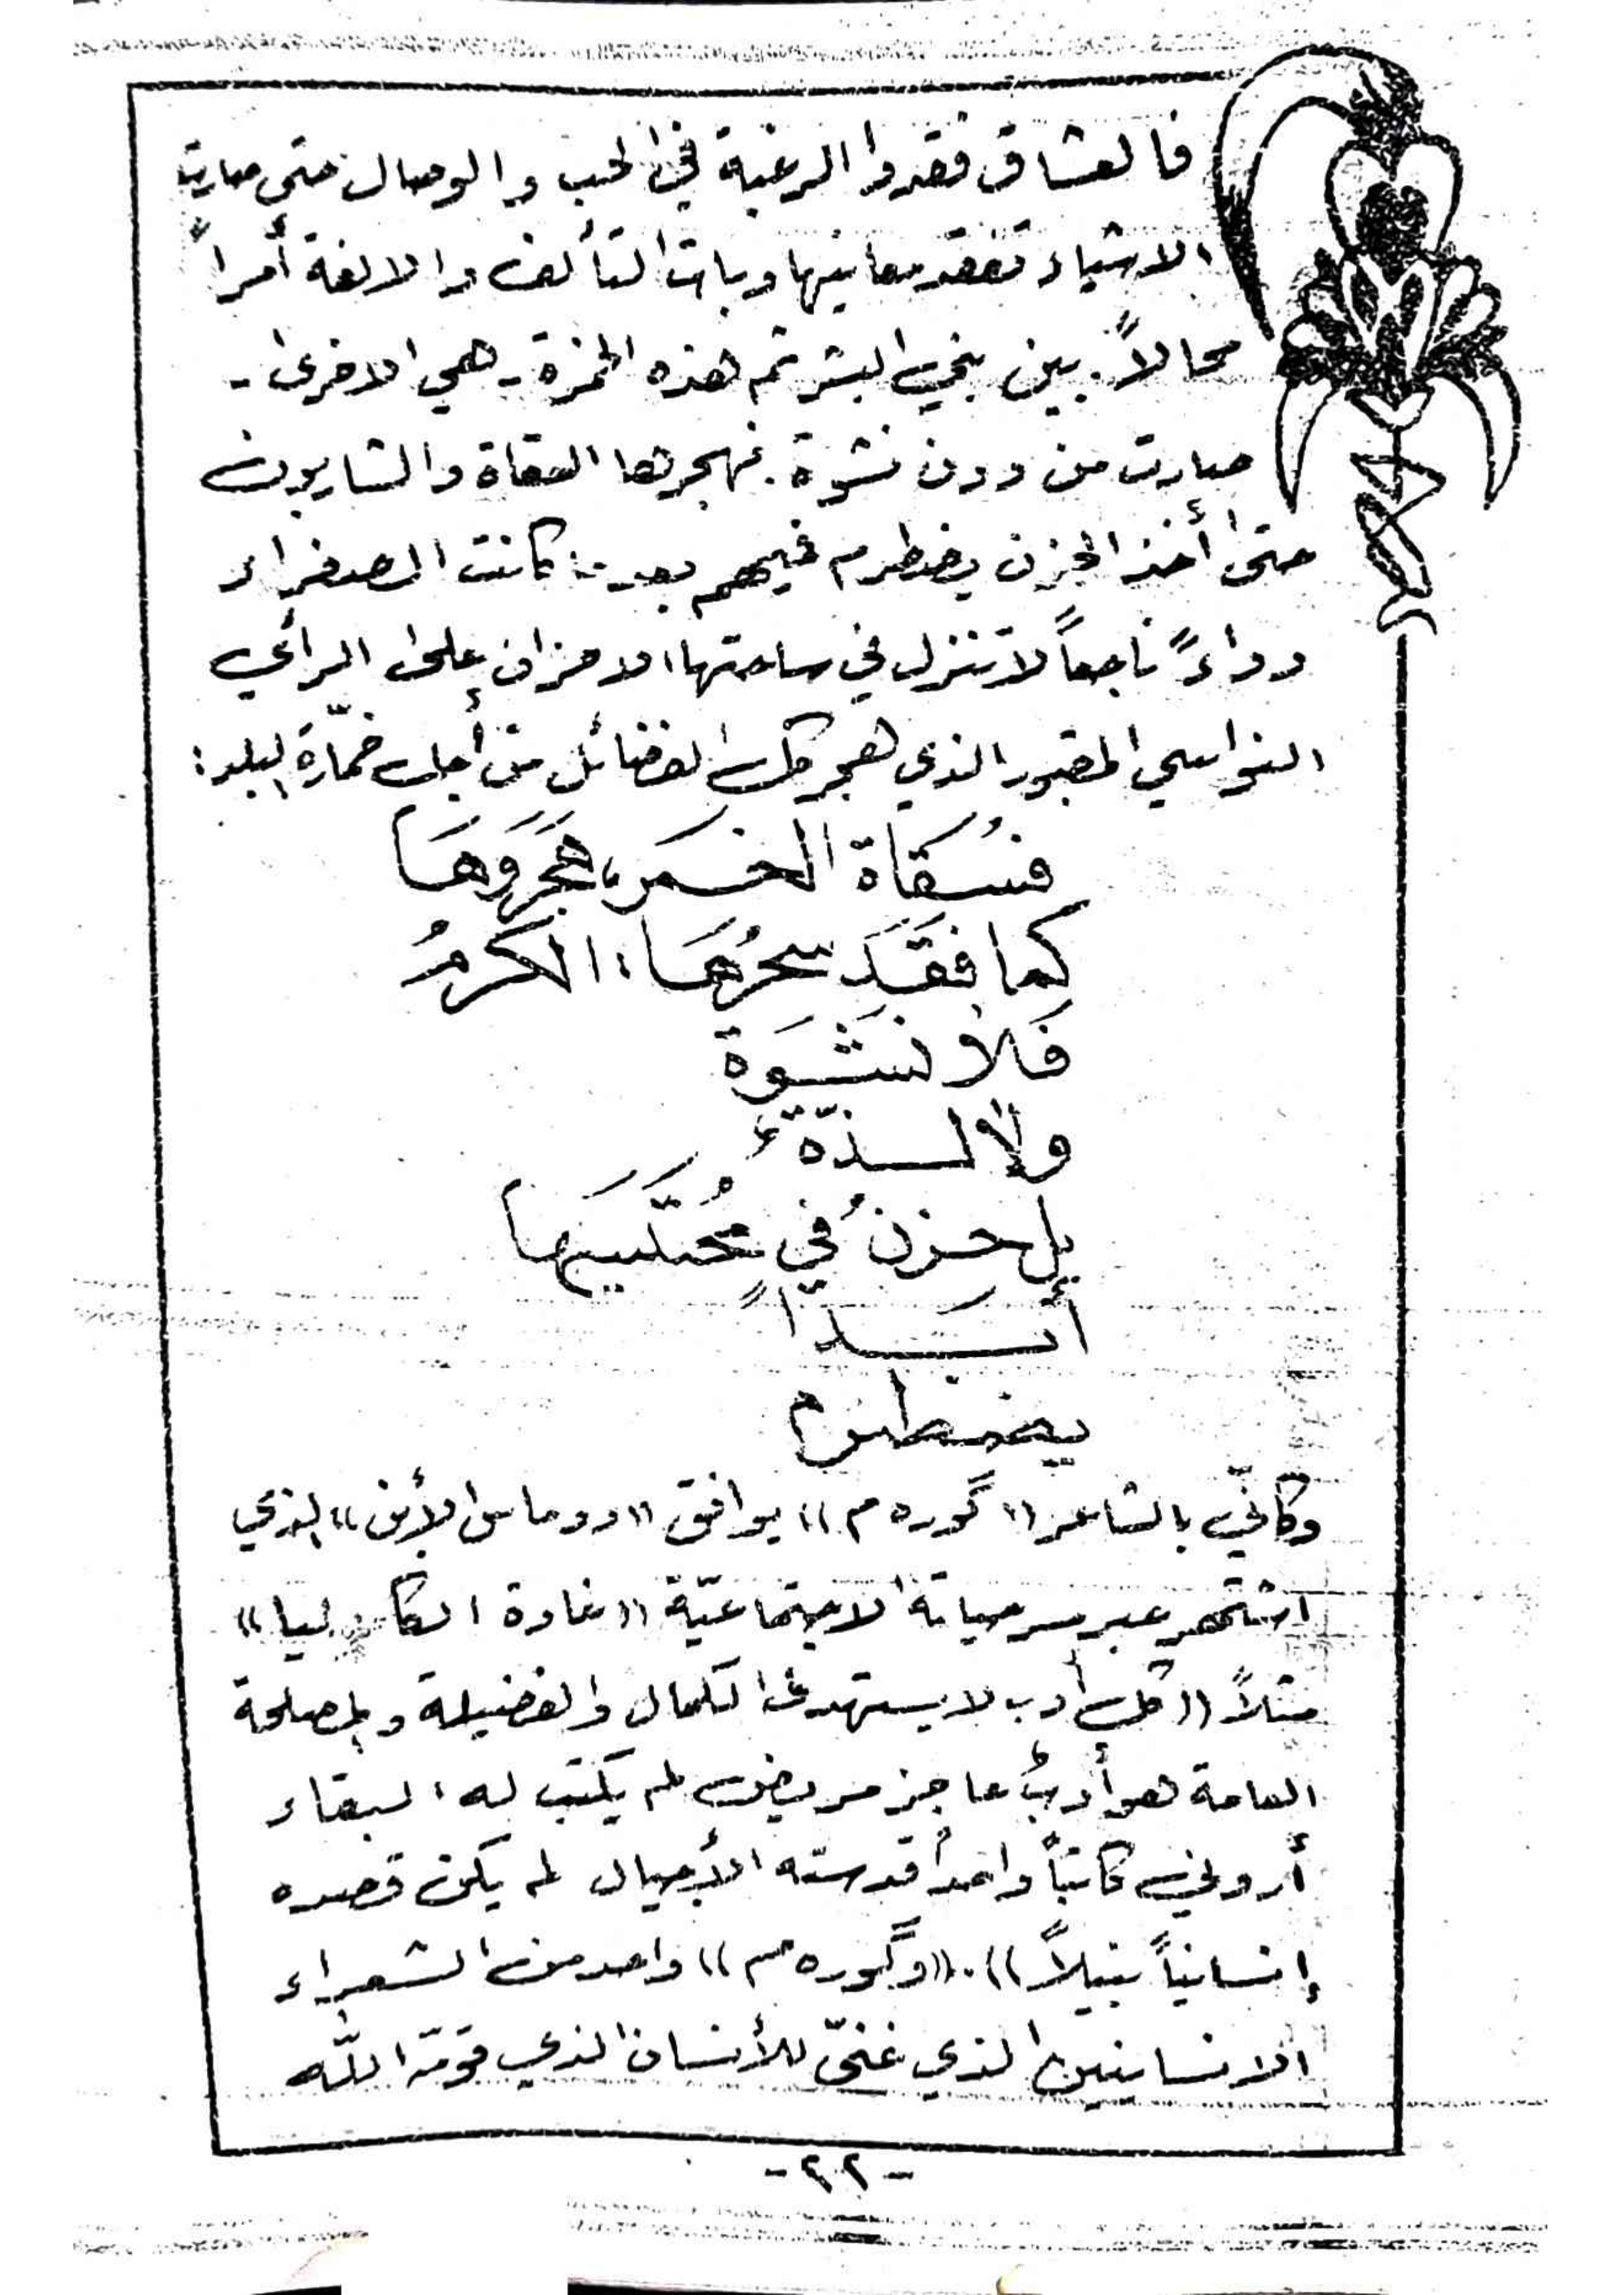 فالعشاق فقدوا الرغبة في الحب والوصال حتى صارت
الاشياء تفقد معانيها وبات التآلف والالفة أمراً
محالاً. بين بني البشر ثم هذه الخمرة - هي الاخرى -
صارت من دون نشوة. فهجرها السقاة والشاربون
حتى أخذ الحزن يضطرم فيهم بعد ما كانت الصفراء
دواءً ناجعاً لا تنزل في ساحتها الاحزان على الرأي
النواسي المقبور الذي هجر كل الفضائل من أجل خمّارة البلد:
فسُقاة الخمر، هَجَروهَا
كما فَقَدَ سحرُهَا، الكرمُ
فَلا نشْوَة
ولا لـذّة
بل حزنُ في مُحتَسيَها
أبَـداً
يضطرم
وكأنّي بالشاعر «گوره م» يوافق «دوماس الأبن» الذي
اشتهر عبر مسرحياته الاجتماعيّة «غادة الكاميليا»
مثلاً «كل أدب لا يستهدف الكمال والفضيلة والمصلحة
العامة هو أدبُ عاجز مريض لم يكتب له البقاء
أروني كاتباً واحداً قدسته الأجيال لم يكن قصده
إنسانياً نبيلاً». «وگوره م» واحد من الشعراء
الانسانيين الذي غنّى للأنسان الذي قوّمه اللّه
-٢٢-